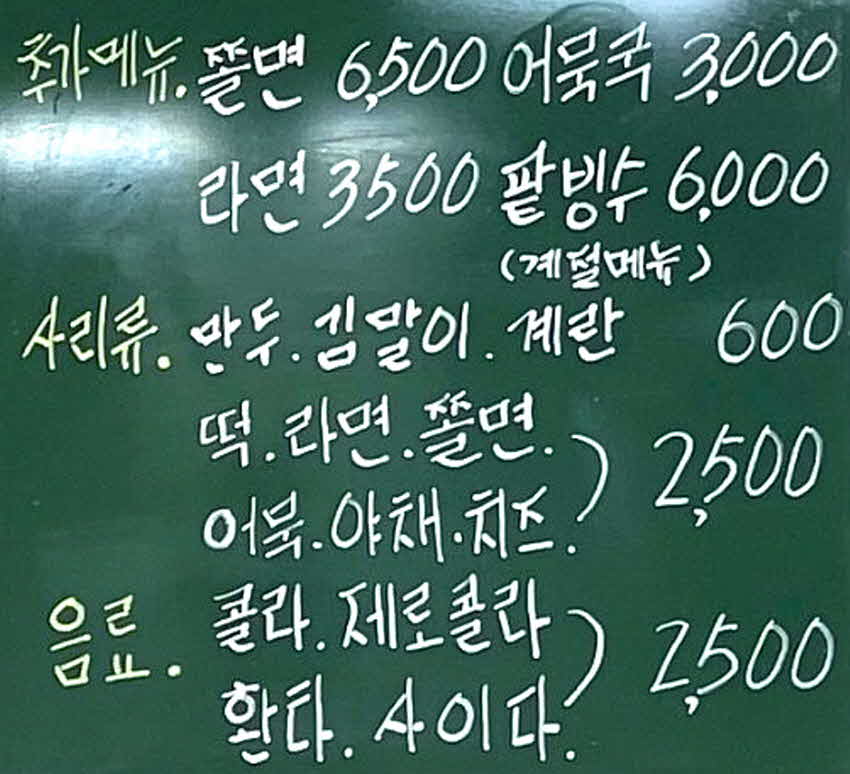 추가메뉴. 쫄면 6,500 어묵국 3,000
라면 3500 팥빙수 6,000
(계절메뉴)
사리류. 만두. 김말이. 계란 600
떡. 라면. 쫄면.
어묵. 야채. 치즈. ) 2,500
음료. 콜라. 제로콜라
환타. 사이다. ) 2,500